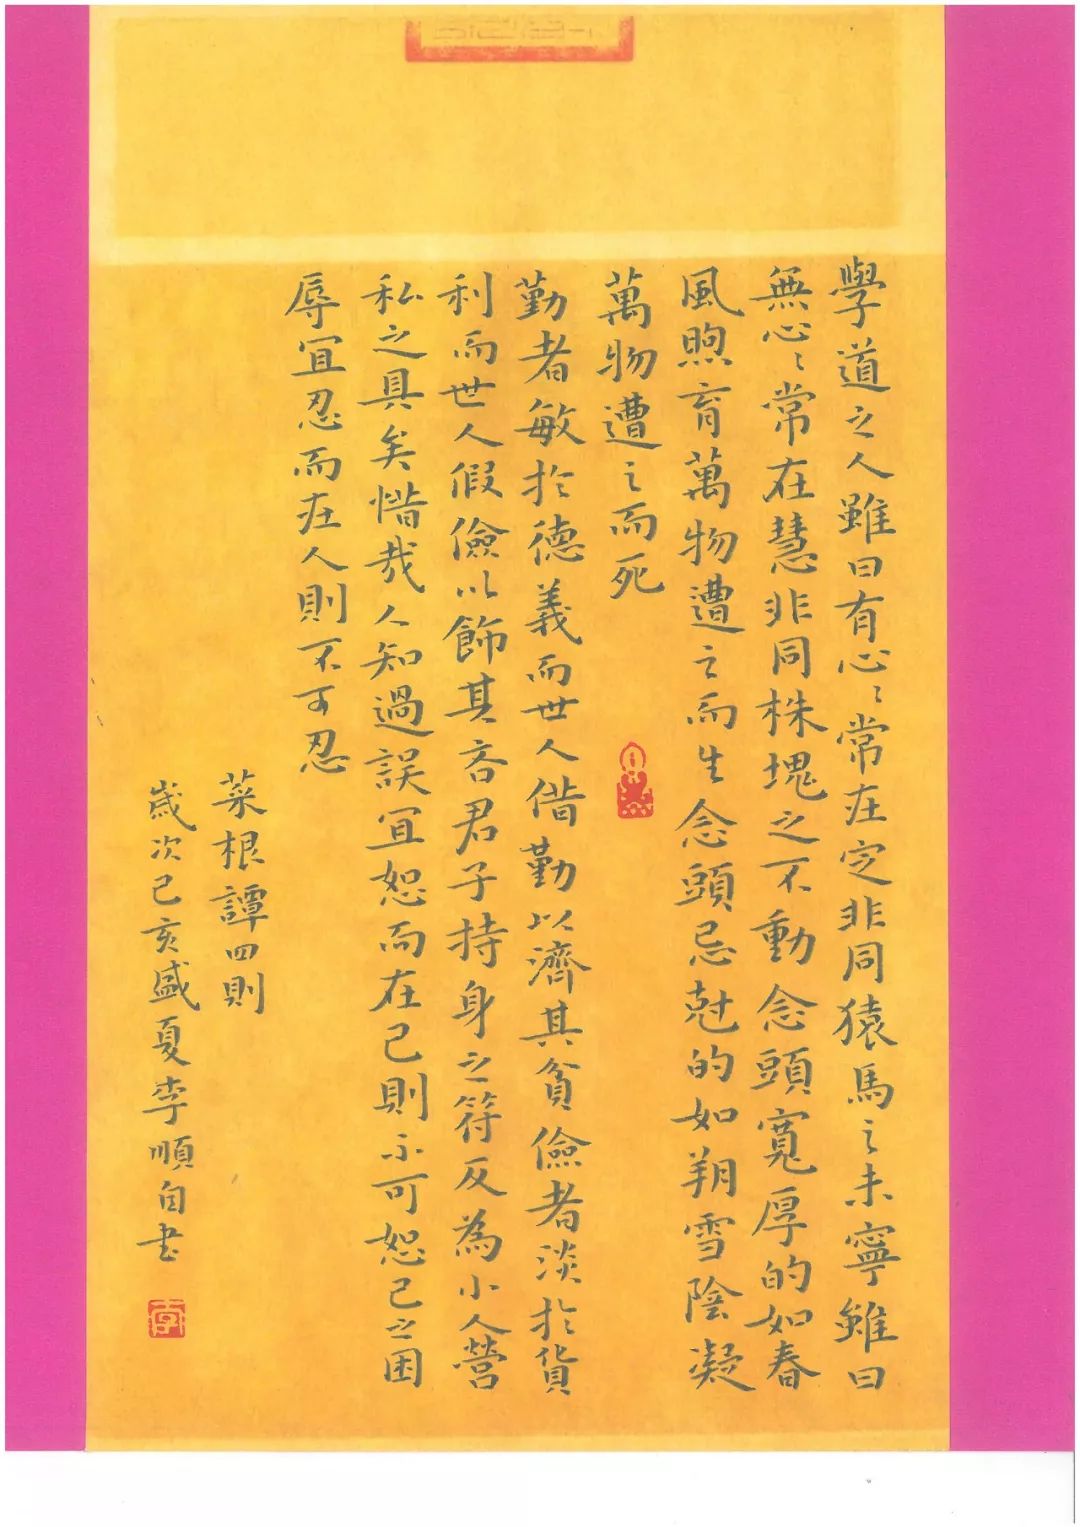 學道之人雖曰有心〻常在定非同猿馬之未寧雖曰
無心〻常在慧非同株塊之不動念頭寬厚的如春
風煦育萬物遭之而生念頭忌尅的如朔雪陰凝
萬物遭之而死
勤者敏於德義而世人借勤以濟其貧儉者淡於貨
利而世人假儉以飾其吝君子持身之符反為小人營
私之具矣惜哉人知過誤宜恕而在己則不可恕己之困
辱宜忍而在人則不可忍
菜根譚四則
歲次己亥盛夏李順自书
李